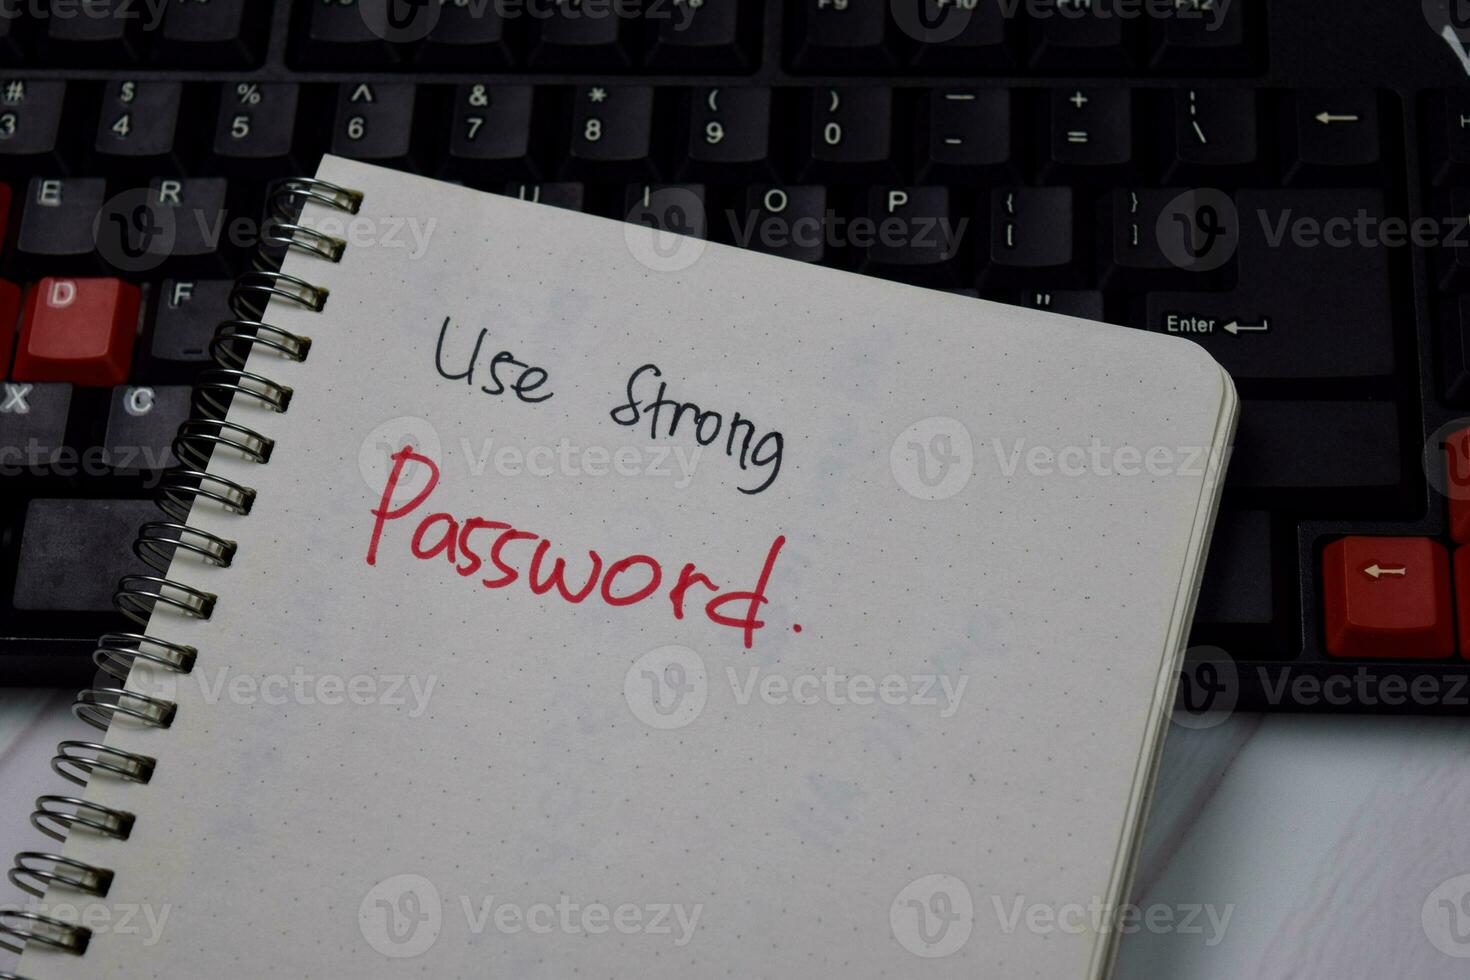 F9 F10 F11 F12
# $ % ^ & * ( ) — + ¦ ←
3 4 5 6 7 8 9 0 - = \
E R U I O P { }
[ ]
D F " Enter ↵
X C
←
Use Strong
Password.
Vecteezy Vecteezy Vecteezy
Vecteezy Vecteezy Vecteezy
Vecteezy Vecteezy Vecteezy
Vecteezy Vecteezy Vecteezy